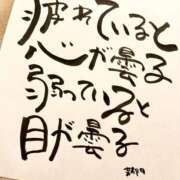 疲れていると
心が曇る
弱っていると
目が曇る